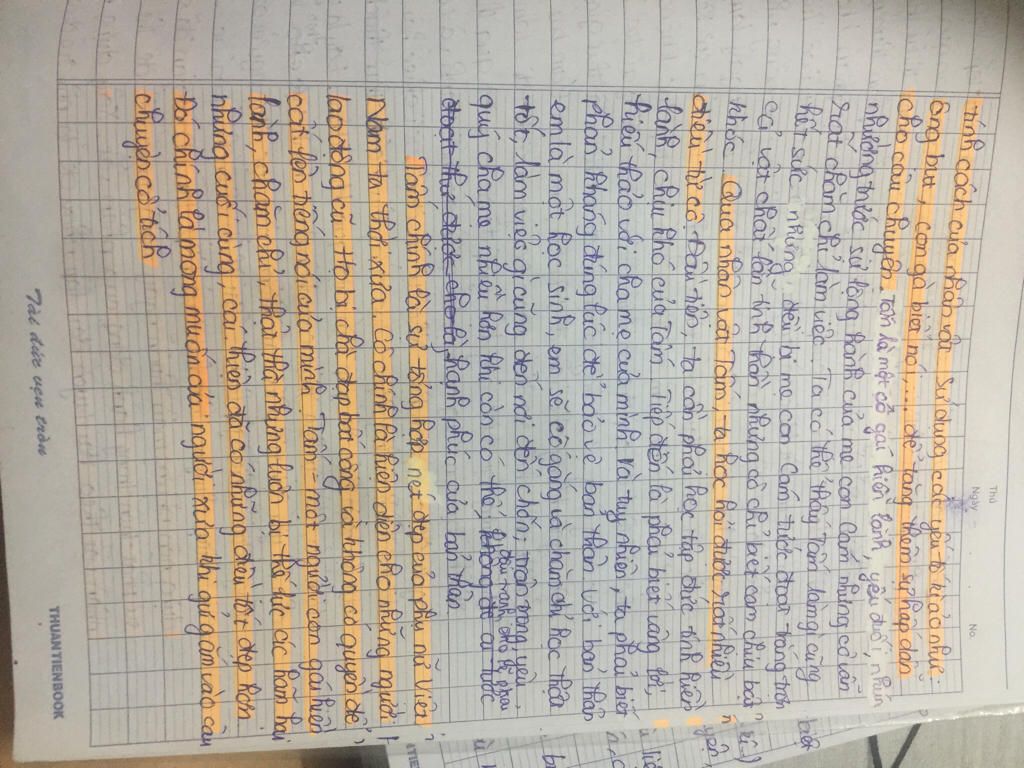 Thứ
Ngày
No.
tính cách của nhân vật. Sử dụng các yếu tố kì ảo như:
ông bụt, con gà biết nói,.... để tăng thêm sự hấp dẫn
cho câu chuyện. Tấm là một cô gái hiền lành, yếu đuối, nhún
nhường trước sự lộng hành của mẹ con Cám nhưng cô vẫn
rất chăm chỉ làm việc. Ta có thể thấy Tấm làm gì cũng
hết sức nhưng đều bị mẹ con Cám tước đoạt trắng trợn
cả vật chất lẫn tinh thần nhưng cô chỉ biết cam chịu, bật
khóc. Qua nhân vật Tấm, ta học hỏi được rất nhiều
điều từ cô. Đầu tiên, ta cần phải học tập đức tính hiền
lành, chịu khó của Tấm. Tiếp đến là phải biết vâng lời,
hiếu thảo với cha mẹ của mình và tuy nhiên, ta phải biết
phản kháng đúng lúc để bảo vệ bản thân. Với bản thân
em là một học sinh, em sẽ cố gắng và chăm chỉ học thật
tốt, làm việc gì cũng đến nơi đến chốn; trân trọng, yêu
quý cha mẹ nhiều hơn khi còn có thể,
đấu tranh để bảo vệ
hạnh phúc của bản thân
Tấm chính là sự tổng hợp nét đẹp của phụ nữ Việt
Nam ta thời xưa. Cô chính là hiện diện cho những người
lao động cũ. Họ bị chà đạp bất công và không có quyền để
cất lên tiếng nói của mình. Tấm - một người con gái hiền
lành, chăm chỉ, thật thà nhưng luôn bị thế lực ác hãm hại
nhưng cuối cùng, cái thiện đã có những điều tốt đẹp hơn
Đó chính là mong muốn của người xưa khi gửi gắm vào câu
chuyện cổ tích
Tài đức vẹn toàn
THUANTIENBOOK